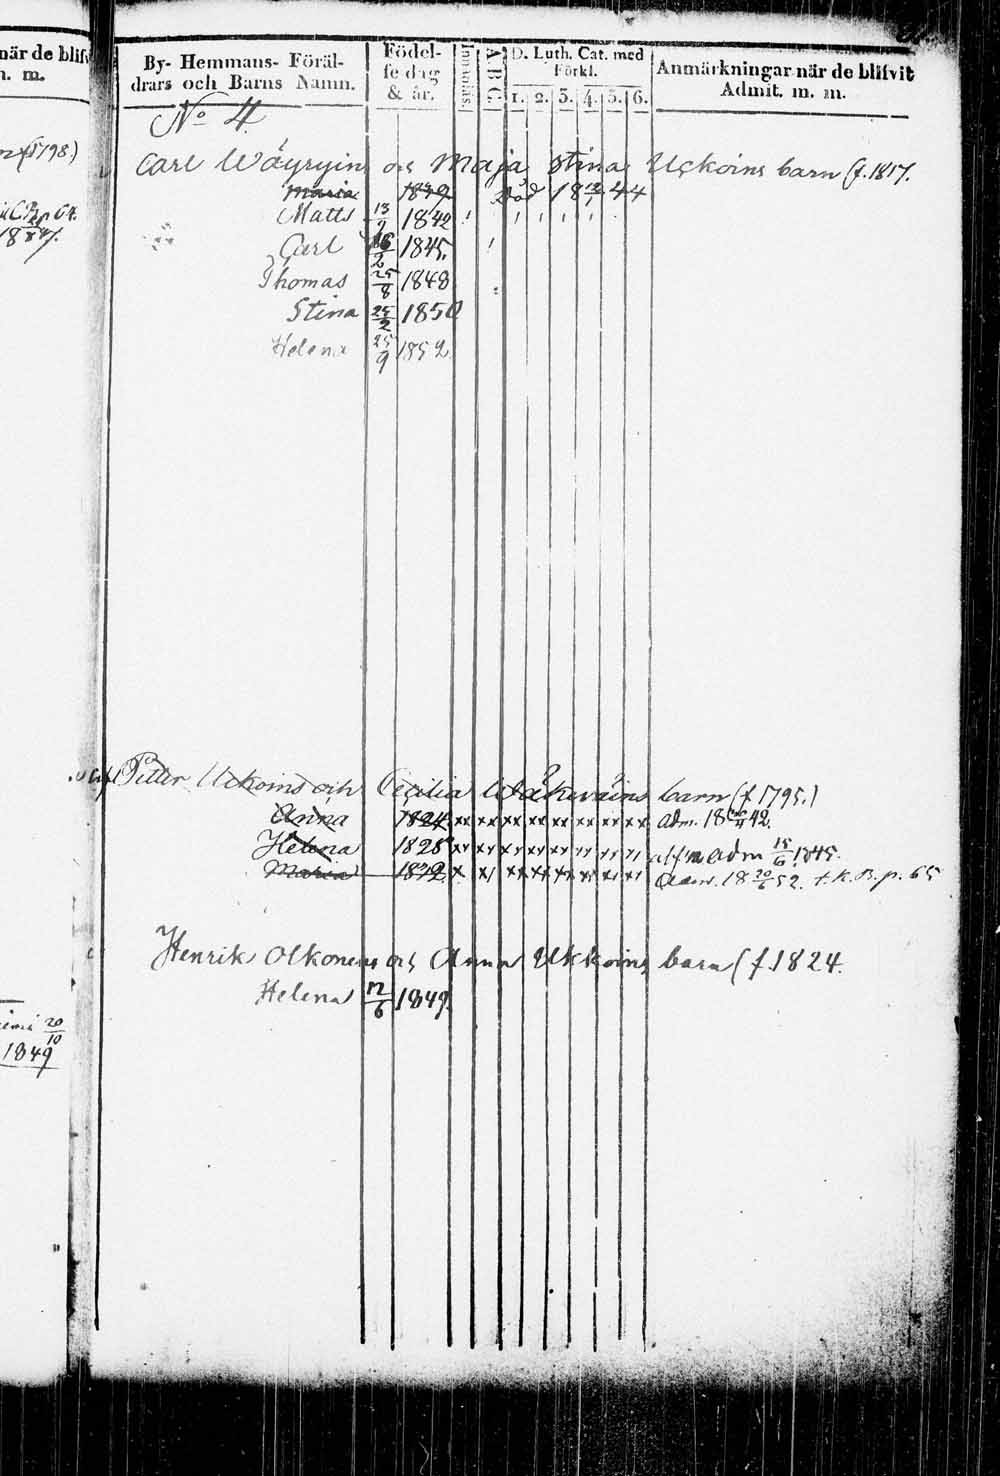 när de blifv
n. m.
1798.)
p. 64.
20/10
1849
By- Hemmans- Föräl-
drars och Barns Namn.
Födel-
se dag
& år.
Innanläs.
A B C
D. Luth. Cat. med
Förkl.
1. 2. 3. 4. 5. 6.
Anmärkningar när de blifvit
Admit. m. m.
No 4
Carl Wäyryin och Maja Stina Uckoins barn (f. 1817.
Maria 1839 död 18 44
Matts 13/9 1842
Carl 16/2 1845.
Thomas 25/8 1848
Stina 25/2 1850
Helena 25/9 1852
Petter Uckoins och Cecilia barn (f 1795.)
Anna 1824 xx xx xx xx xx xx xx xx adm. 18 42.
Helena 1828 adm 15/6 1845.
Maria 1832 Adm. 18 20/6 52. t. K. B. p. 65
Henrik Olkonens och Anna Ukkoins barn (f. 1824.
Helena 12/6 1849.